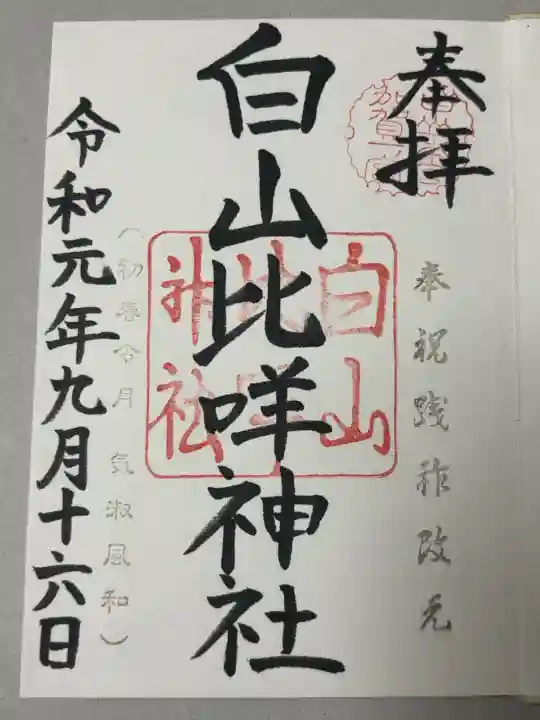 奉拝
奉祝践祚改元
白山比咩神社
白山比咩神社
(初春令月 気淑風和)
令和元年九月十六日